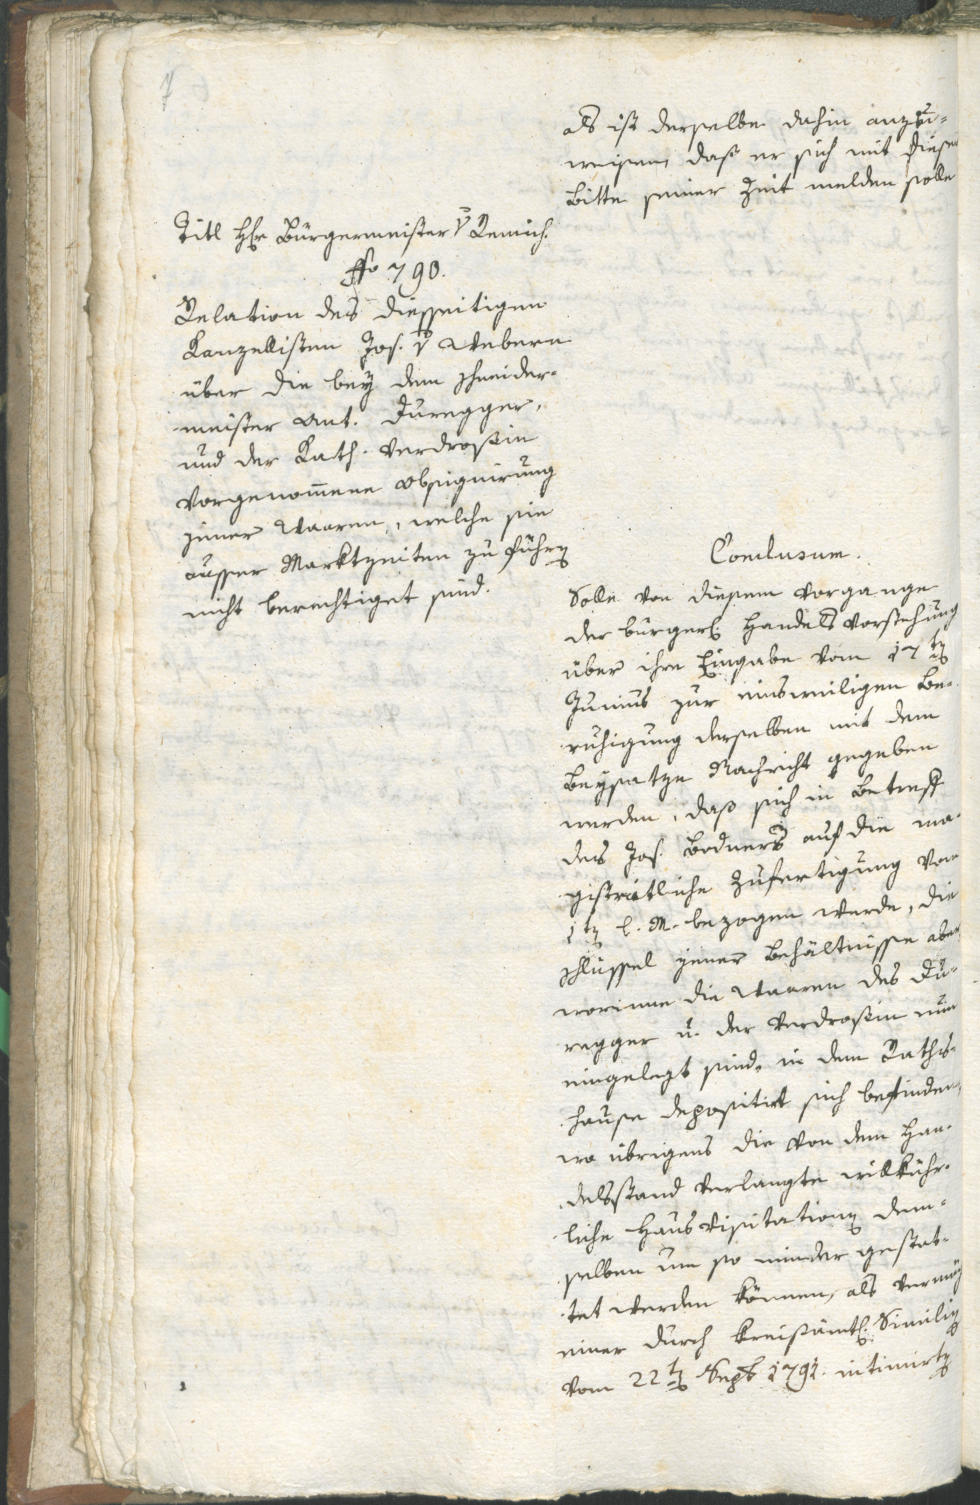 7
als ist derselbe dahin anzu-
weisen, daß er sich mit dieser
Bitte seiner Zeit melden solle
Titl Hr Bürgermeister v Remich.
790.
Relation des diesseitigen
Kanzellisten Jos. v Webern
über die bey dem Schneider-
meister Ant. Duregger,
und der Kath. Verdroßin
vorgenom̄ene Obsignirung
jener Waaren, welche sie
ausser Marktzeiten zu führen
nicht berechtiget sind.
Conclusum.
Solle von diesem Vorgange
der bürgerl: Handelsvorstehung
über ihre Eingabe vom 17ten
Junius zur einsweiligen Be-
ruhigung derselben mit dem
Beysatze Nachricht gegeben
werden, daß sich in Betreff
des Jos. Bodners auf die ma-
gistratliche Zufertigung vom
1ten l. M. bezogen werde, die
Schlüssel jener Behältnisse aber
worinne die Waaren des Du-
regger u. der Verdroßin nun
eingelegt sind, in dem Rath-
hause depositirt sich befinden,
wo übrigens die von dem Han-
delsstand verlangte willkühr-
liche Hausvisitationen dem-
selben um so minder gestat-
tet werden können, als vermög
einer durch kreisämtl: Similien
vom 22ten Sept 1791. intimirten